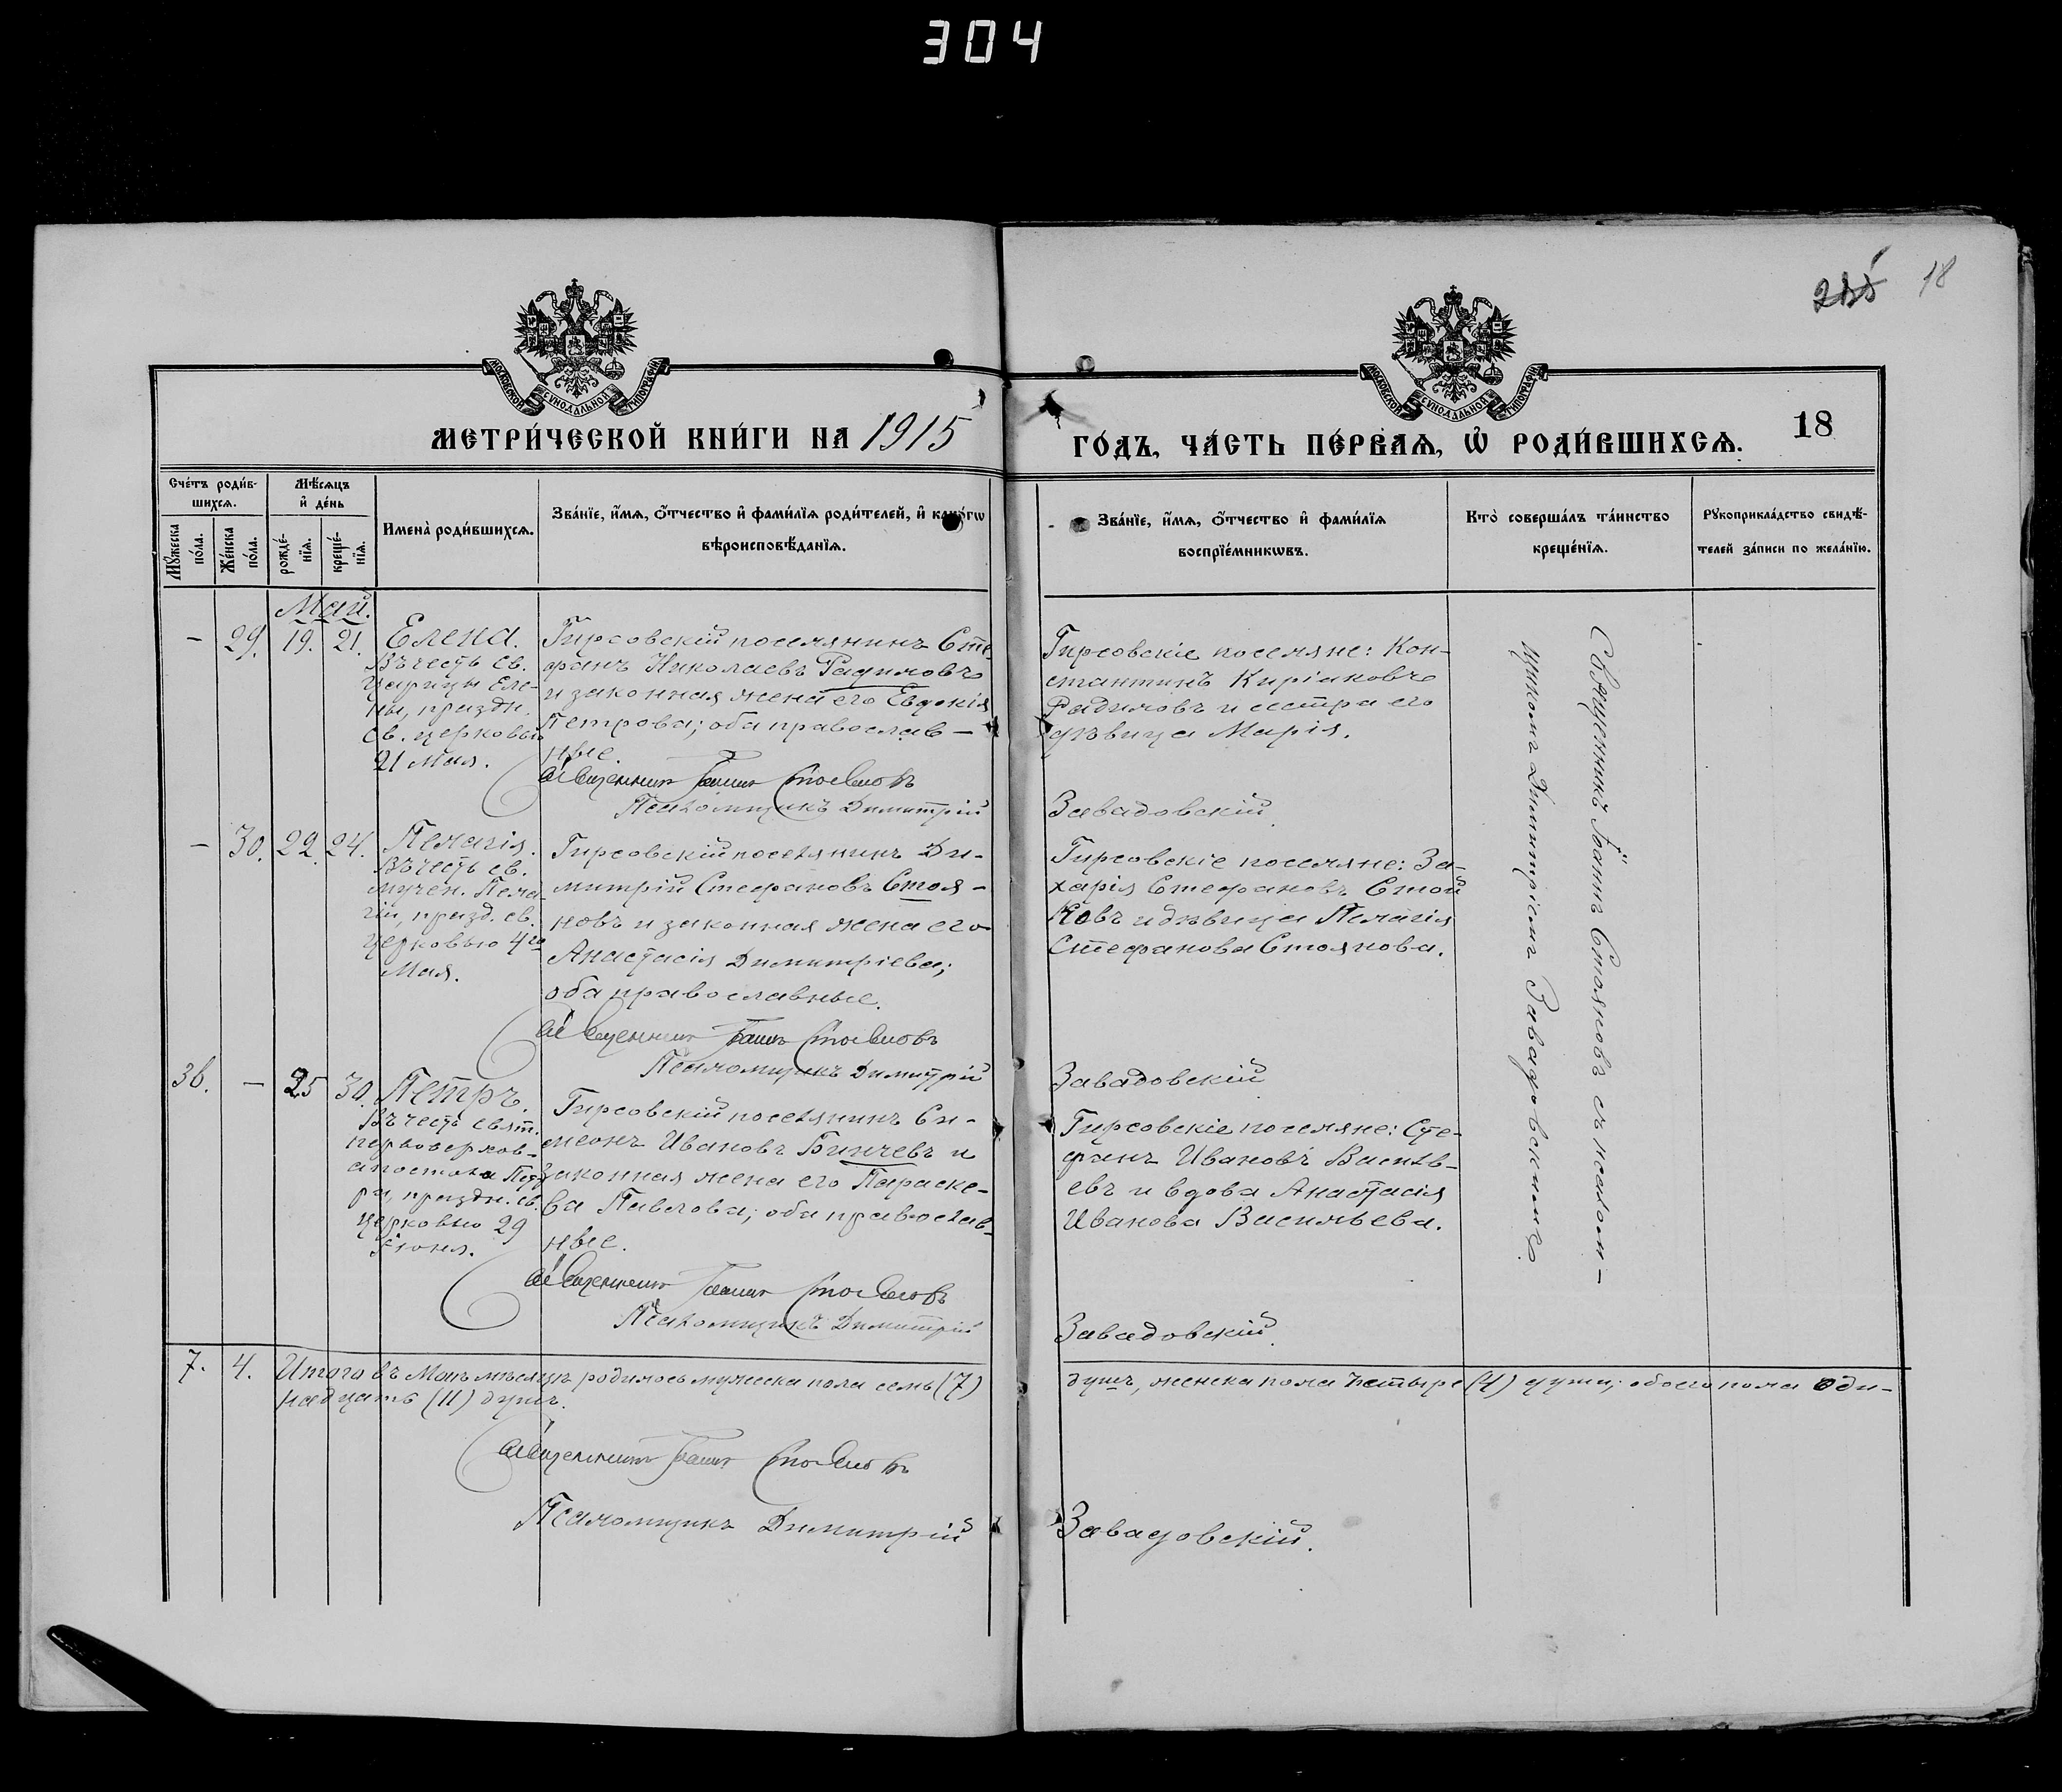 304
285 18
МОСКОВСКОЙ СУНОДАЛЬНОЙ ТИПОГРАФІИ
МОСКОВСКОЙ СУНОДАЛЬНОЙ ТИПОГРАФІИ
МЕТРИ́ЧЕСКОЙ КНИ́ГИ НА 1915
ГО́ДЪ, ЧА́СТЬ ПЕ́РВАѦ, Ѡ҆ РОДИ́ВШИХСѦ. 18
Сче́тъ роди́в-
шихсѧ.
Мꙋ́жеска
по́ла.
Же́нска
по́ла.
Мѣ́сѧцъ
и҆ де́нь
рожде́-
нїѧ.
креще́-
нїѧ.
Имена̀ роди́вшихсѧ.
Зва́нїе, и҆́мѧ, ѻ҆́тчество и҆ фами́лїѧ роди́телей, и҆ како́гѡ
вѣроисповѣ́данїѧ.
Зва́нїе, и҆́мѧ, ѻ҆́тчество и҆ фами́лїѧ
воспрїе́мникѡвъ.
Кто̀ соверша́лъ та́инство
креще́нїѧ.
Рꙋкоприкла́дство свидѣ́-
телей за́писи по жела́нїю.
Май.
– 29. 19. 21. Елена.
Въ честь св.
царицы Еле-
ны, праздн.
св. церковью
21 Мая.
Гирсовскій поселянинъ Сте
фанъ Николаевъ Радиловъ
и законная жена его Евдокія
Петрова; оба православ-
ные.
Священникъ Іоаннъ Стояновъ
Псаломщикъ Димитрій
Гирсовскіе поселяне: Кон-
стантинъ Киріаковъ
Радиловъ и сестра его
дѣвица Марія.
Завадовскій.
– 30. 22. 24. Пелагія.
Въ честь св.
мучен. Пела-
гіи, празд. св.
церковью 4го
Мая.
Гирсовскій поселянинъ Ди-
митрій Стефановъ Стоя-
новъ и законная жена его
Анастасія Димитріева;
оба православные.
Священникъ Іоаннъ Стояновъ
Псаломщикъ Димитрій
Гирсовскіе поселяне: За-
харія Стефановъ Стой
ковъ и дѣвица Пелагія
Стефанова Стоянова.
Завадовскій
36. – 25 30. Петръ.
Въ честь свят.
первоверхов-
апостола Пет
ра, праздн. св.
церковью 29
Іюня.
Гирсовскій поселянинъ Си-
меонъ Ивановъ Бинчевъ и
законная жена его Параске-
ва Павлова; оба православ-
ные.
Священникъ Іоаннъ Стояновъ
Псаломщикъ Димитрій
Гирсовскіе поселяне: Сте-
фанъ Ивановъ Василь-
евъ и вдова Анастасія
Иванова Васильева.
Завадовскій.
Священникъ Іоаннъ Стояновъ съ псалом-
щикомъ Димитріемъ Завадовскимъ.
7. 4. Итого въ Маѣ мѣсяцѣ родилось мужеска пола семь (7) душъ, женска пола четыре (4) души; обоего пола оди-
надцать (11) душъ.
Священникъ Іоаннъ Стояновъ
Псаломщикъ Димитрій Завадовскій.